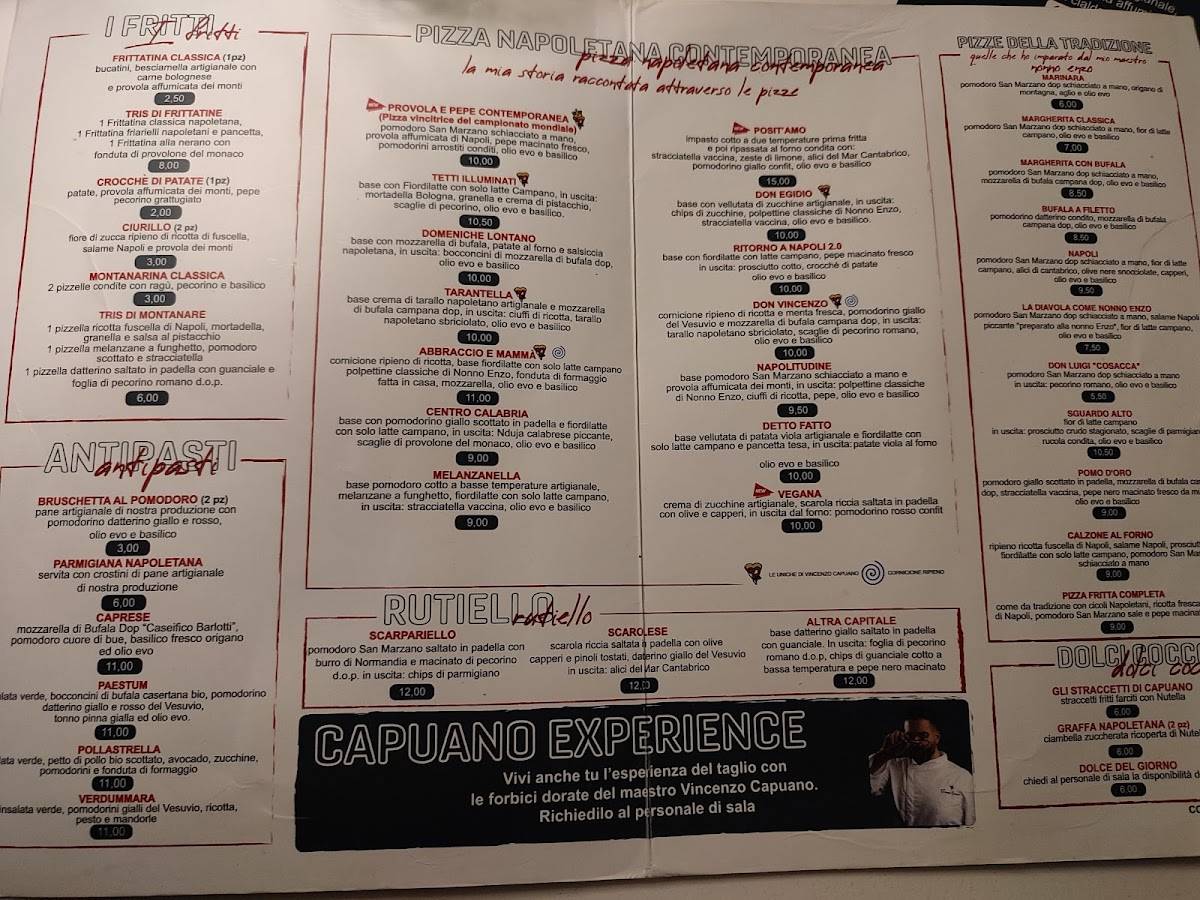 I FRITTI
I fritti
FRITTATINA CLASSICA (1pz)
bucatini, besciamella artigianale con
carne bolognese
e provola affumicata dei monti
2,50
TRIS DI FRITTATINE
1 Frittatina classica napoletana,
1 Frittatina friarielli napoletani e pancetta,
1 Frittatina alla nerano con
fonduta di provolone del monaco
8,00
CROCCHÈ DI PATATE (1pz)
patate, provola affumicata dei monti, pepe
pecorino grattugiato
2,00
CIURILLO (2 pz)
fiore di zucca ripieno di ricotta di fuscella,
salame Napoli e provola dei monti
3,00
MONTANARINA CLASSICA
2 pizzelle condite con ragù, pecorino e basilico
3,00
TRIS DI MONTANARE
1 pizzella ricotta fuscella di Napoli, mortadella,
granella e salsa al pistacchio
1 pizzella melanzane a funghetto, pomodoro
scottato e stracciatella
1 pizzella datterino saltato in padella con guanciale e
foglia di pecorino romano d.o.p.
6,00
ANTIPASTI
antipasti
BRUSCHETTA AL POMODORO (2 pz)
pane artigianale di nostra produzione con
pomodorino datterino giallo e rosso,
olio evo e basilico
3,00
PARMIGIANA NAPOLETANA
servita con crostini di pane artigianale
di nostra produzione
6,00
CAPRESE
mozzarella di Bufala Dop "Caseifico Barlotti",
pomodoro cuore di bue, basilico fresco origano
ed olio evo
11,00
PAESTUM
lata verde, bocconcini di bufala casertana bio, pomodorino
datterino giallo e rosso del Vesuvio,
tonno pinna gialla ed olio evo.
11,00
POLLASTRELLA
lata verde, petto di pollo bio scottato, avocado, zucchine,
pomodorini e fonduta di formaggio
11,00
VERDUMMARA
insalata verde, pomodorini gialli del Vesuvio, ricotta,
pesto e mandorle
11,00
PIZZA NAPOLETANA CONTEMPORANEA
pizza napoletana contemporanea
la mia storia raccontata attraverso le pizze
NEW PROVOLA E PEPE CONTEMPORANEA
(Pizza vincitrice del campionato mondiale)
pomodoro San Marzano schiacciato a mano,
provola affumicata di Napoli, pepe macinato fresco,
pomodorini arrostiti conditi, olio evo e basilico
10,00
TETTI ILLUMINATI
base con Fiordilatte con solo latte Campano, in uscita:
mortadella Bologna, granella e crema di pistacchio,
scaglie di pecorino, olio evo e basilico.
10,50
DOMENICHE LONTANO
base con mozzarella di bufala, patate al forno e salsiccia
napoletana, in uscita: bocconcini di mozzarella di bufala dop,
olio evo e basilico
10,00
TARANTELLA
base crema di tarallo napoletano artigianale e mozzarella
di bufala campana dop, in uscita: ciuffi di ricotta, tarallo
napoletano sbriciolato, olio evo e basilico
10,00
ABBRACCIO E MAMMÀ
cornicione ripieno di ricotta, base fiordilatte con solo latte campano
polpettine classiche di Nonno Enzo, fonduta di formaggio
fatta in casa, mozzarella, olio evo e basilico
11,00
CENTRO CALABRIA
base con pomodorino giallo scottato in padella e fiordilatte
con solo latte campano, in uscita: Nduja calabrese piccante,
scaglie di provolone del monaco, olio evo e basilico
9,00
MELANZANELLA
base pomodoro cotto a basse temperature artigianale,
melanzane a funghetto, fiordilatte con solo latte campano,
in uscita: stracciatella vaccina, olio evo e basilico
9,00
NEW POSIT'AMO
impasto cotto a due temperature prima fritta
e poi ripassata al forno condita con:
stracciatella vaccina, zeste di limone, alici del Mar Cantabrico,
pomodorino giallo confit, olio evo e basilico
15,00
DON EGIDIO
base con vellutata di zucchine artigianale, in uscita:
chips di zucchine, polpettine classiche di Nonno Enzo,
stracciatella vaccina, olio evo e basilico.
10,00
RITORNO A NAPOLI 2.0
base con fiordilatte con latte campano, pepe macinato fresco
in uscita: prosciutto cotto, crocchè di patate
olio evo e basilico
10,00
DON VINCENZO
cornicione ripieno di ricotta e menta fresca, pomodorino giallo
del Vesuvio e mozzarella di bufala campana dop, in uscita:
tarallo napoletano sbriciolato, scaglie di pecorino romano,
olio evo e basilico
10,00
NAPOLITUDINE
base pomodoro San Marzano schiacciato a mano e
provola affumicata dei monti, in uscita: polpettine classiche
di Nonno Enzo, ciuffi di ricotta, pepe, olio evo e basilico
9,50
DETTO FATTO
base vellutata di patata viola artigianale e fiordilatte con
solo latte campano e pancetta tesa, in uscita: patate viola al forno
olio evo e basilico
10,00
NEW VEGANA
crema di zucchine artigianale, scarola riccia saltata in padella
con olive e capperi, in uscita dal forno: pomodorino rosso confit
10,00
LE UNICHE DI VINCENZO CAPUANO
CORNICIONE RIPIENO
RUTIELLO
rutiello
SCARPARIELLO
pomodoro San Marzano saltato in padella con
burro di Normandia e macinato di pecorino
d.o.p. in uscita: chips di parmigiano
12,00
SCAROLESE
scarola riccia saltata in padella con olive
capperi e pinoli tostati, datterino giallo del Vesuvio
in uscita: alici del Mar Cantabrico
12,00
ALTRA CAPITALE
base datterino giallo saltato in padella
con guanciale. In uscita: foglia di pecorino
romano d.o.p, chips di guanciale cotto a
bassa temperatura e pepe nero macinato
12,00
CAPUANO EXPERIENCE
Vivi anche tu l'esperienza del taglio con
le forbici dorate del maestro Vincenzo Capuano.
Richiedilo al personale di sala
PIZZE DELLA TRADIZIONE
quelle che ho imparato dal mio maestro
nonno enzo
MARINARA
pomodoro San Marzano dop schiacciato a mano, origano di
montagna, aglio e olio evo
6,00
MARGHERITA CLASSICA
pomodoro San Marzano dop schiacciato a mano, fior di latte
campano, olio evo e basilico
7,00
MARGHERITA CON BUFALA
pomodoro San Marzano dop schiacciato a mano,
mozzarella di bufala campana dop, olio evo e basilico
8.50
BUFALA A FILETTO
pomodorino datterino condito, mozzarella di bufala
campana dop, olio evo e basilico
8.50
NAPOLI
pomodoro San Marzano dop schiacciato a mano, fior di latte
campano, alici di cantabrico, olive nere snocciolate, capperi,
olio evo e basilico
9,50
LA DIAVOLA COME NONNO ENZO
pomodoro San Marzano dop schiacciato a mano, salame Napoli
piccante "preparato alla nonno Enzo", fior di latte campano,
olio evo e basilico
7,50
DON LUIGI "COSACCA"
pomodoro San Marzano dop schiacciato a mano
in uscita: pecorino romano, olio evo e basilico
5,50
SGUARDO ALTO
fior di latte campano
in uscita: prosciutto crudo stagionato, scaglie di parmigian
rucola condita, olio evo e basilico
10,50
POMO D'ORO
pomodorino giallo scottato in padella, mozzarella di bufala ca
dop, stracciatella vaccina, pepe nero macinato fresco da m
olio evo e basilico
9,00
CALZONE AL FORNO
ripieno ricotta fuscella di Napoli, salame Napoli, prosciutt
fiordilatte con solo latte campano, pomodoro San Mar
schiacciato a mano
9,00
PIZZA FRITTA COMPLETA
come da tradizione con cicoli Napoletani, ricotta fresca
di Napoli, pomodoro San Marzano sale e pepe macinat
9,00
DOLCI COCC
dolci coc
GLI STRACCETTI DI CAPUANO
straccetti fritti farciti con Nutella
6,00
GRAFFA NAPOLETANA (2 pz)
ciambella zuccherata ricoperta di Nutel
6,00
DOLCE DEL GIORNO
chiedi al personale di sala la disponibilità d
6,00
CO